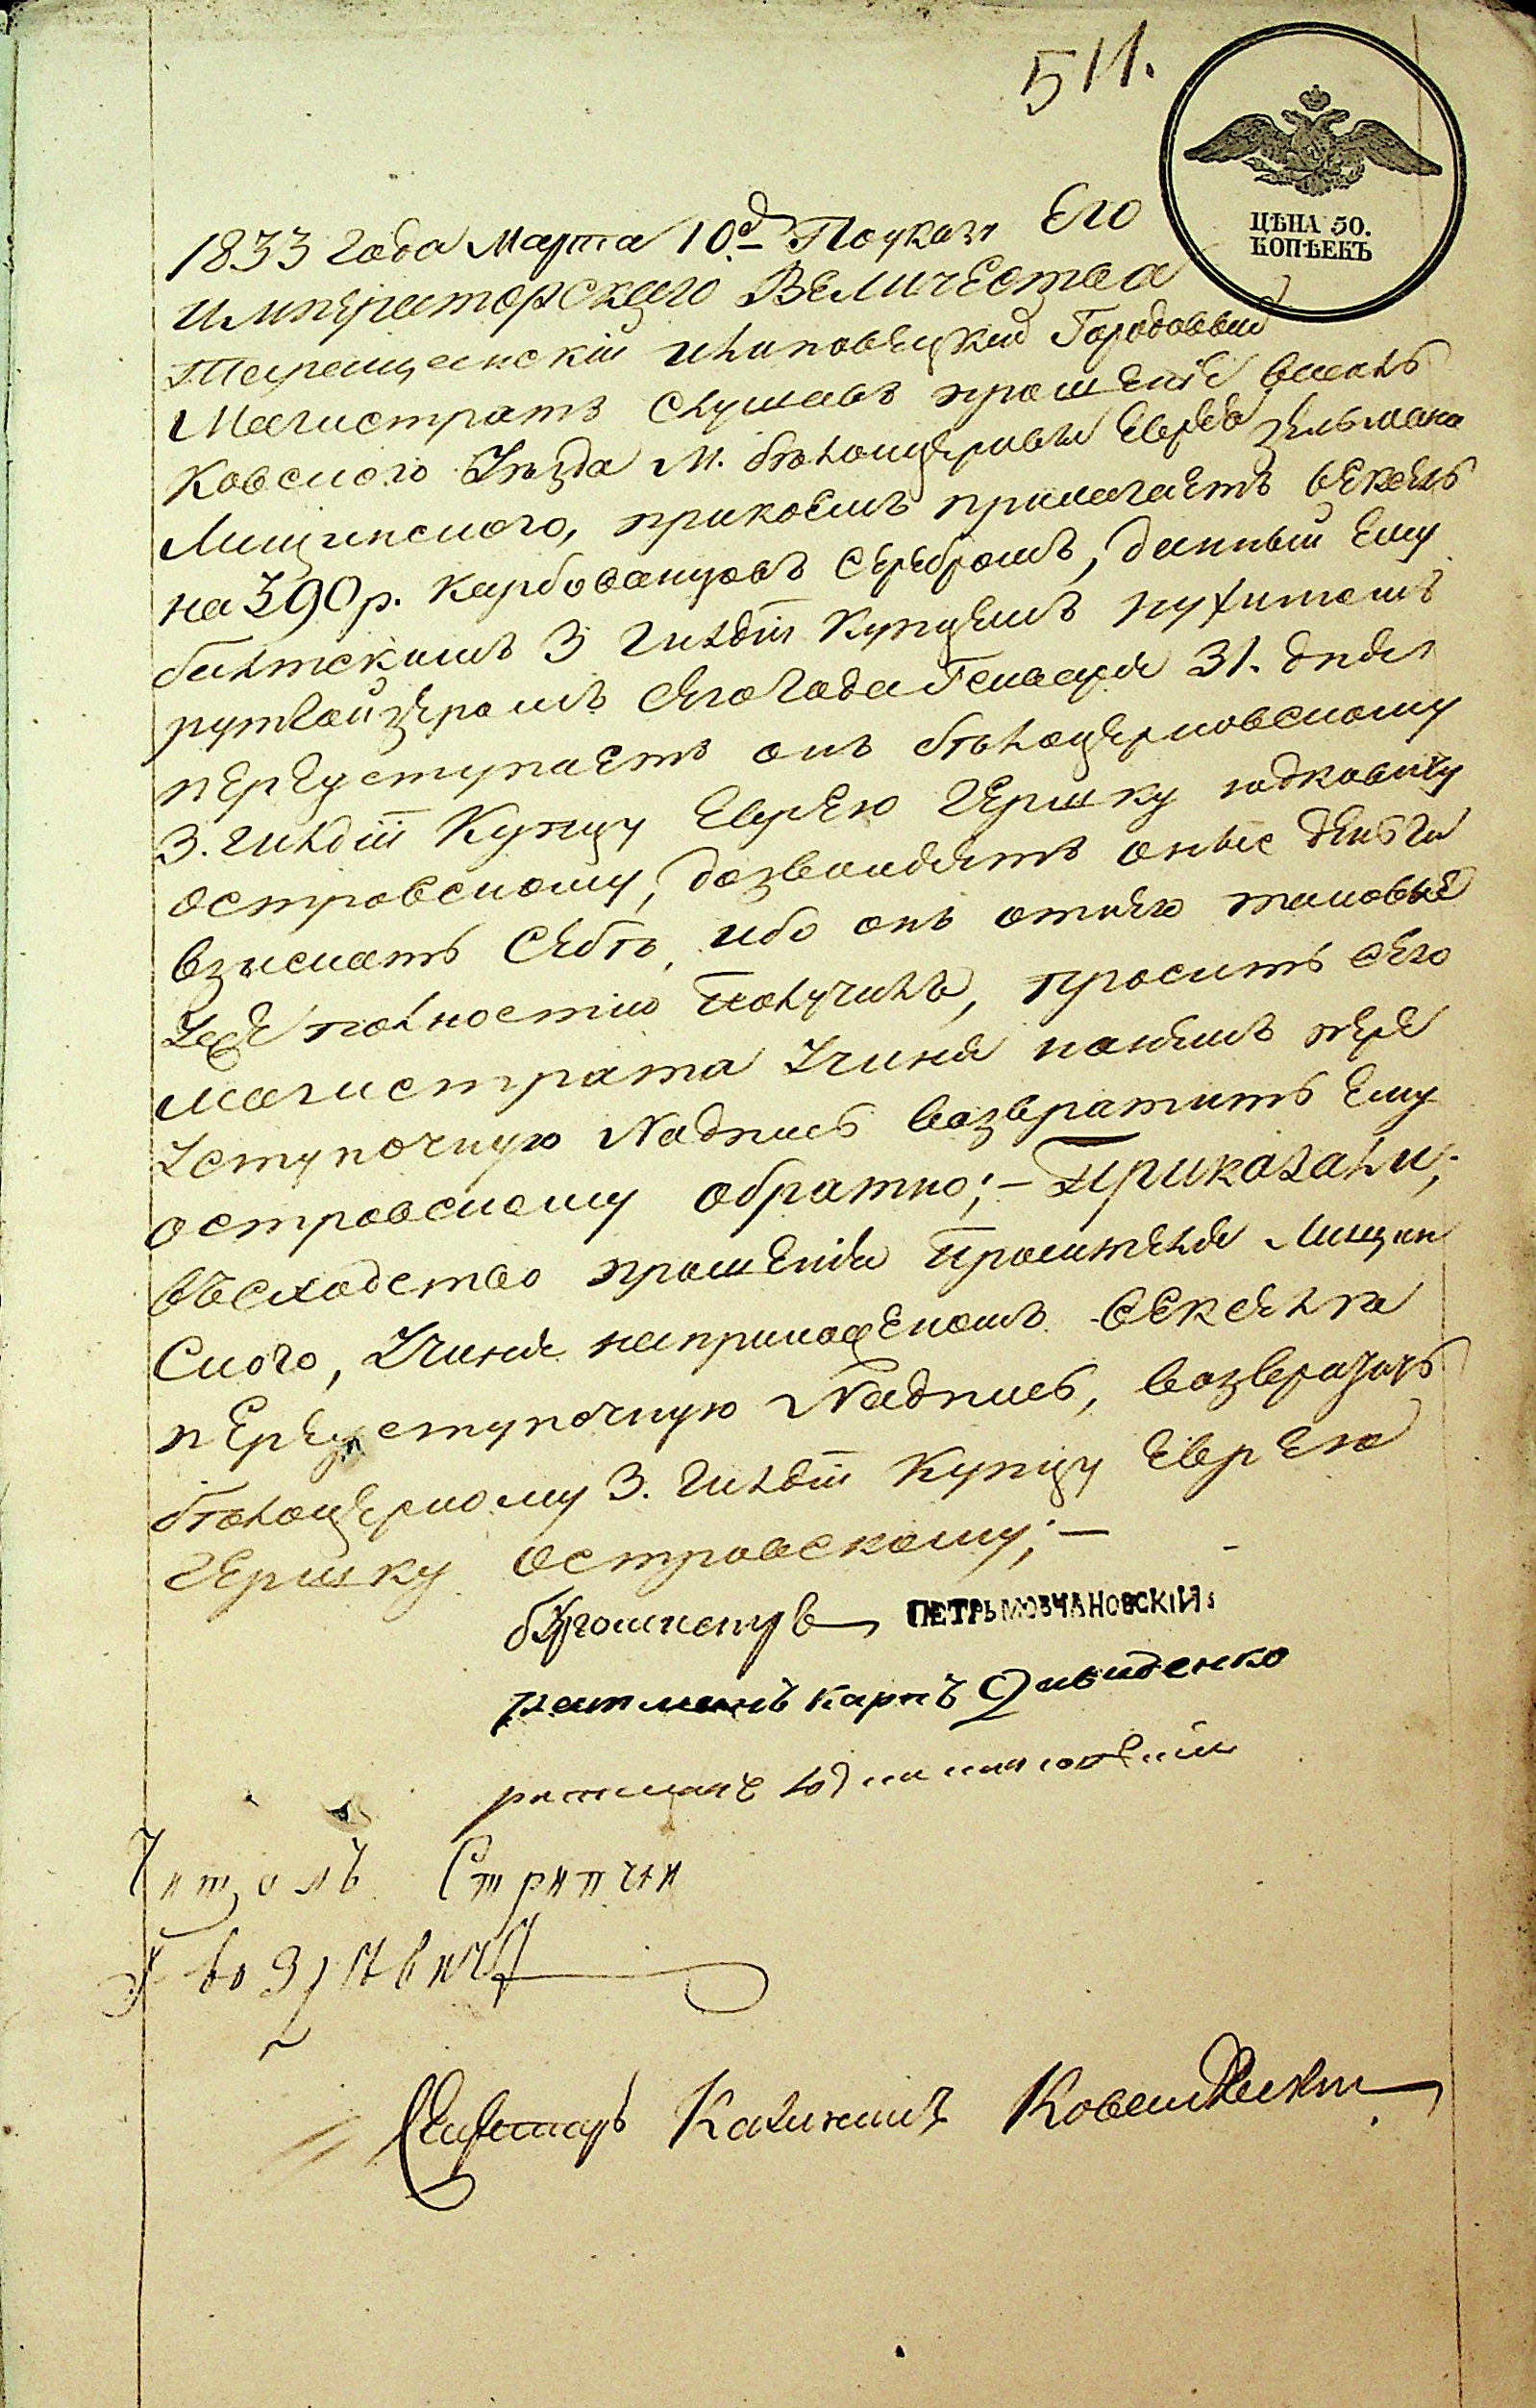 511.
ЦѢНА 50.
КОПѢЕКЪ
1833 Года Марта 10д По указу Его
Императорского Величества
Таращанскій и Липовецкий Городовый
Магистратъ Слушавъ прошеніе василь
Ковского Уѣзда М. бѣлоцеркви Еврея Зельмана
Лищинского, при коемъ прилагаетъ вексель
на 390 р. карбованцовъ Серебромъ, данный Ему
3 гилдіи Купцемъ
Сего Года Генваря 31. дня
переуступаетъ онъ бѣлоцерковскому
3. гилдіи Купцу Еврею Гершку юдковичу
островскому, дозволяетъ оные деньги
взыскать Себѣ, ибо онъ отнего таковые
Уже полностію получилъ, проситъ сего
магистрата Учиня наномъ пере
Уступочную Надпись возвратить Ему
островскому обратно; – Приказали;
въ сходство прошенія просителя Лищин
Ского, Учиня на приложеномъ векселѣ
переуступочную Надпись, возвратить
бѣлоцеркому 3. гилдіи Купцу Еврею
Гершку островскому; –
бургомистръ ПЕТРЪ МОВЧАНОВСКІЙ
ратманъ Карпъ Давиденко
ратманъ
Читалъ Стряпчій
Секретарь